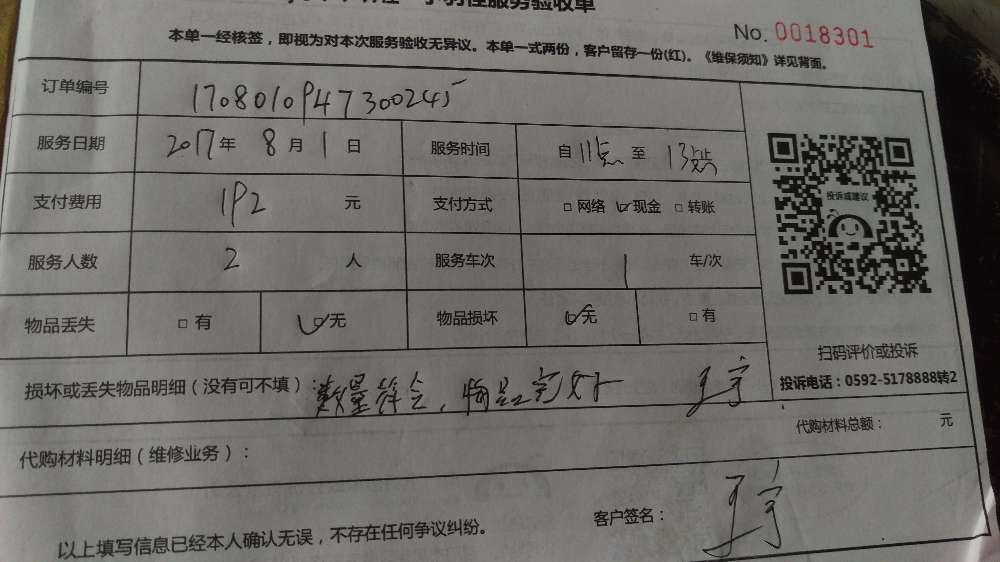 服务验收单
No. 0018301
本单一经核签，即视为对本次服务验收无异议。本单一式两份，客户留存一份(红)。《维保须知》详见背面。
订单编号 1708010947300245
服务日期 2017年 8月 1日 服务时间 自 11点 至 13点
支付费用 192 元 支付方式 □ 网络 ☑ 现金 □ 转账
服务人数 2 人 服务车次 1 车/次
物品丢失 □ 有 ☑ 无 物品损坏 ☑ 无 □ 有
投诉或建议
扫码评价或投诉
投诉电话：0592-5178888转2
损坏或丢失物品明细（没有可不填）：数量符合，物品完好 王宇
代购材料明细（维修业务）： 代购材料总额： 元
以上填写信息已经本人确认无误，不存在任何争议纠纷。 客户签名： 王宇